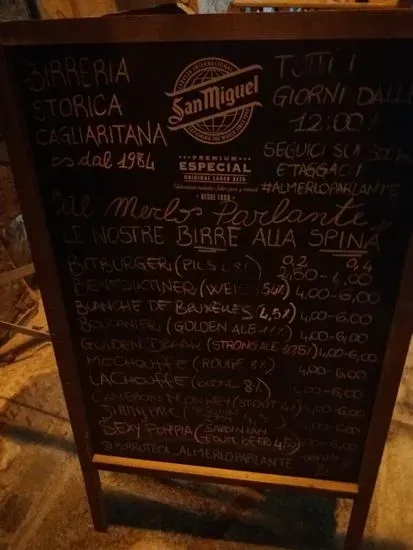 BIRRERIA
STORICA
CAGLIARITANA
dal 1984
San Miguel
PREMIUM
ESPECIAL
ORIGINAL LAGER BEER
TUTTI I
GIORNI DALLE
12:00!
SEGUICI SUI
E TAGGACI
#ALMERLOPARLANTE
al Merlo Parlante
LE NOSTRE BIRRE ALLA SPINA
0,2 0,4
BITBURGER (PILS 4,8%) 2,50 - 4,00
BENEDIKTINER (WEISS 5,4%) 4,00-6,00
BLANCHE DE BRUXELLES 4,5%) 4,00-6,00
(GOLDEN ALE 4,00-6,00
GOLDEN DRAAK (STRONG ALE 4,00-6,00
MC CHOUFFE (ROUGE 8%) 4,00-6,00
LA CHOUFFE (BLOND 8%) 4,00-6,00
MONKEY (STOUT 4,00-6,00
4,00-6,00
SEXY POMPIA (SARDINIAN
BEER 4,5%)
@BIRROTECA_ALMERLOPARLANTE